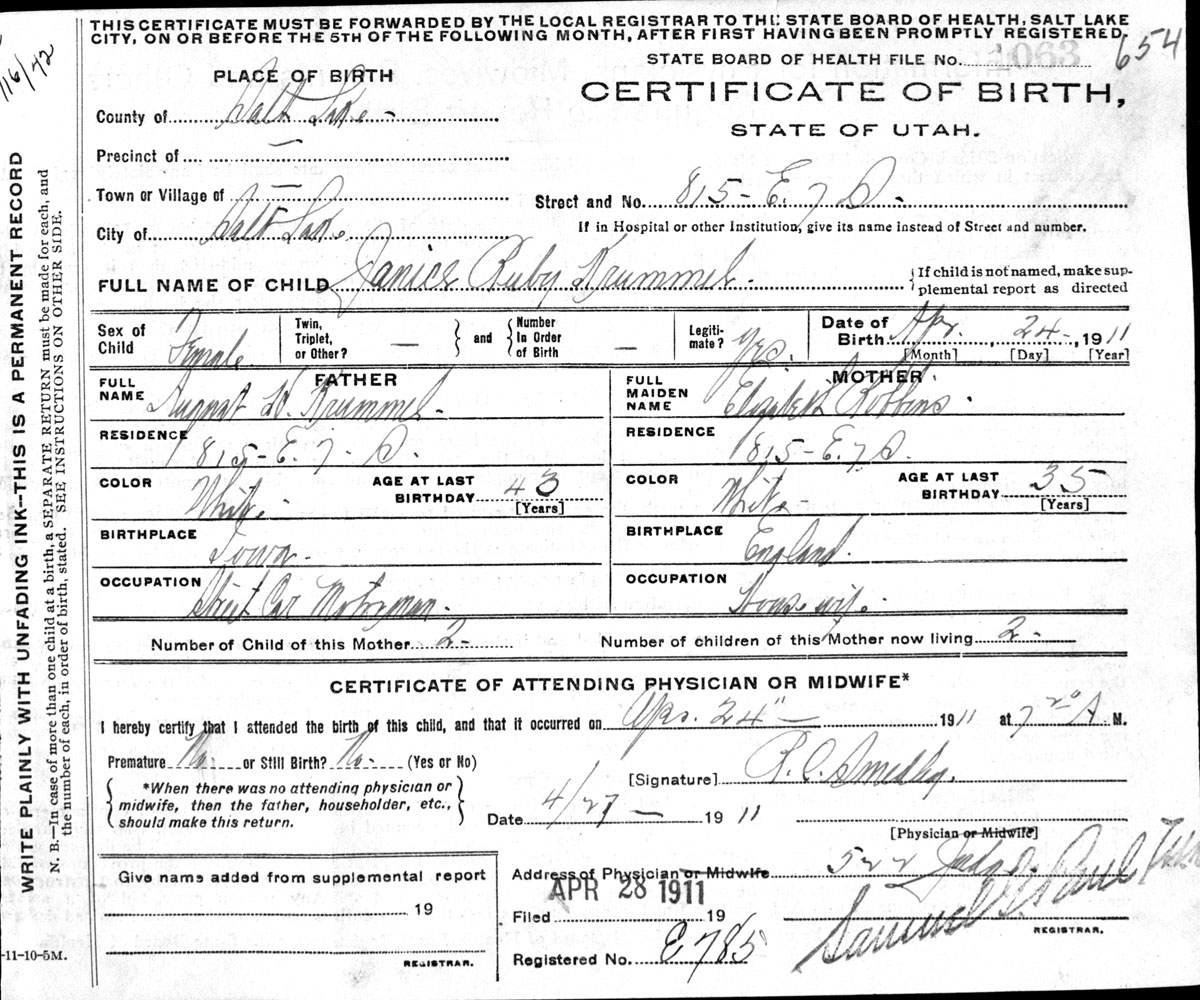 THIS CERTIFICATE MUST BE FORWARDED BY THE LOCAL REGISTRAR TO THE STATE BOARD OF HEALTH, SALT LAKE
CITY, ON OR BEFORE THE 5TH OF THE FOLLOWING MONTH, AFTER FIRST HAVING BEEN PROMPTLY REGISTERED.
STATE BOARD OF HEALTH FILE NO. 1063 654
PLACE OF BIRTH
CERTIFICATE OF BIRTH,
STATE OF UTAH.
County of Salt Lake -
Precinct of —
Town or Village of —
Street and No. 815 - E. 7 S. -
City of Salt Lake
If in Hospital or other Institution, give its name instead of Street and number.
FULL NAME OF CHILD Janice Ruby Krummel -
If child is not named, make sup-
plemental report as directed
Sex of Child Female
Twin, Triplet, or Other? — and Number In Order of Birth —
Legiti-mate? Yes.
Date of Birth Apr. 24 -, 1911
[Month] [Day] [Year]
FATHER
FULL NAME August W. Krummel -
RESIDENCE 815 - E. 7. S.
COLOR White - AGE AT LAST BIRTHDAY 43
[Years]
BIRTHPLACE Iowa -
OCCUPATION Street Car Motorman -
MOTHER
FULL MAIDEN NAME Elizabeth Robbins -
RESIDENCE 815 - E. 7 S.
COLOR White - AGE AT LAST BIRTHDAY 35
[Years]
BIRTHPLACE England.
OCCUPATION Housewife -
Number of Child of this Mother 2 - Number of children of this Mother now living 2 -
CERTIFICATE OF ATTENDING PHYSICIAN OR MIDWIFE*
I hereby certify that I attended the birth of this child, and that it occurred on Apr. 24" — 1911 at 7 20 A. M.
Premature No. or Still Birth? No. (Yes or No)
[Signature] Smedley.
*When there was no attending physician or
midwife, then the father, householder, etc.,
should make this return.
Date 4/27 — 1911
[Physician or Midwife]
Address of Physician or Midwife 522 Judge
Give name added from supplemental report
19
REGISTRAR.
Filed APR 28 1911 19
Samuel G. Paul
REGISTRAR.
Registered No. E 785
-11-10-5M.
WRITE PLAINLY WITH UNFADING INK—THIS IS A PERMANENT RECORD
N. B.—In case of more than one child at a birth, a SEPARATE RETURN must be made for each, and
the number of each, in order of birth, stated. SEE INSTRUCTIONS ON OTHER SIDE.